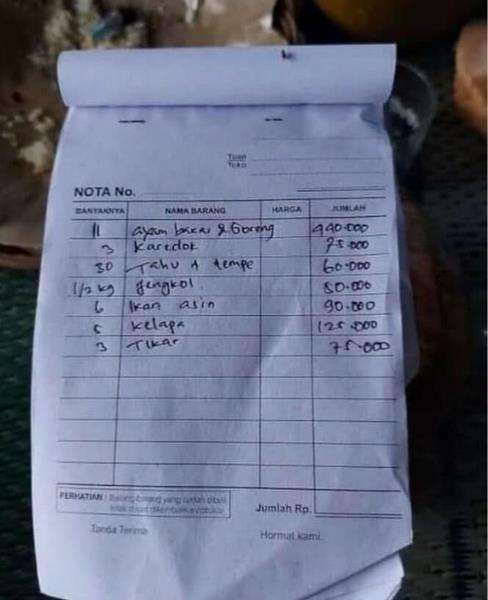 Tuan
Toko
NOTA No.
BANYAKNYA NAMA BARANG HARGA JUMLAH
11 ayam bakar & Goreng 440.000
3 Karedok 75.000
30 Tahu + tempe 60.000
1/2 kg Jengkol 50.000
6 Ikan asin 90.000
5 Kelapa 125.000
3 Tikar 75.000
PERHATIAN : Barang-barang yang sudah dibeli
tidak dapat dikembalikan/ditukar
Jumlah Rp.
Tanda Terima
Hormat kami,